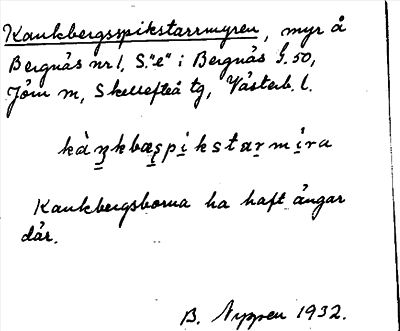 Kankbergsspikstarrmyren, myr å
Bergnäs nr 1, S. "e" i Bergnäs G. 50,
Jörn sn, Skellefteå tg, Västerb. l.
kàŋkbæspikstarmira
Kankbergsborna ha haft ängar
där.
B. Nyppen 1932.